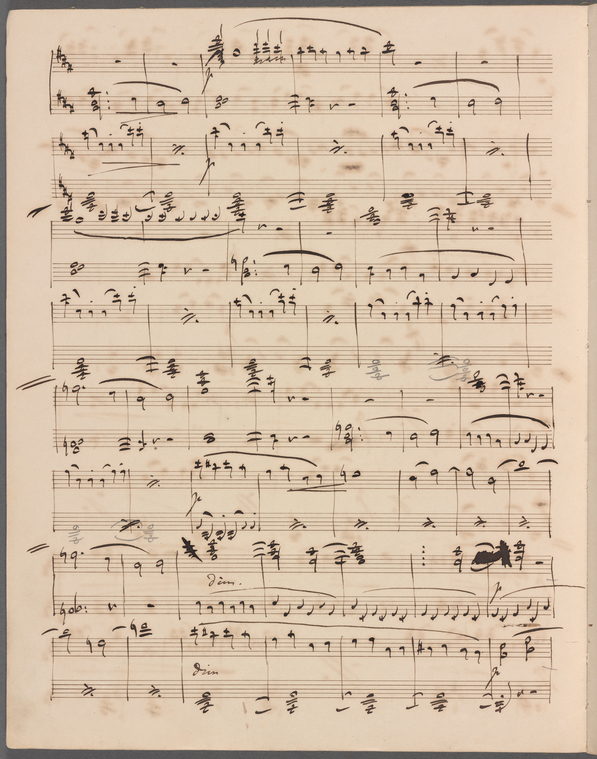 p
p
p
dim.
p
dim
p